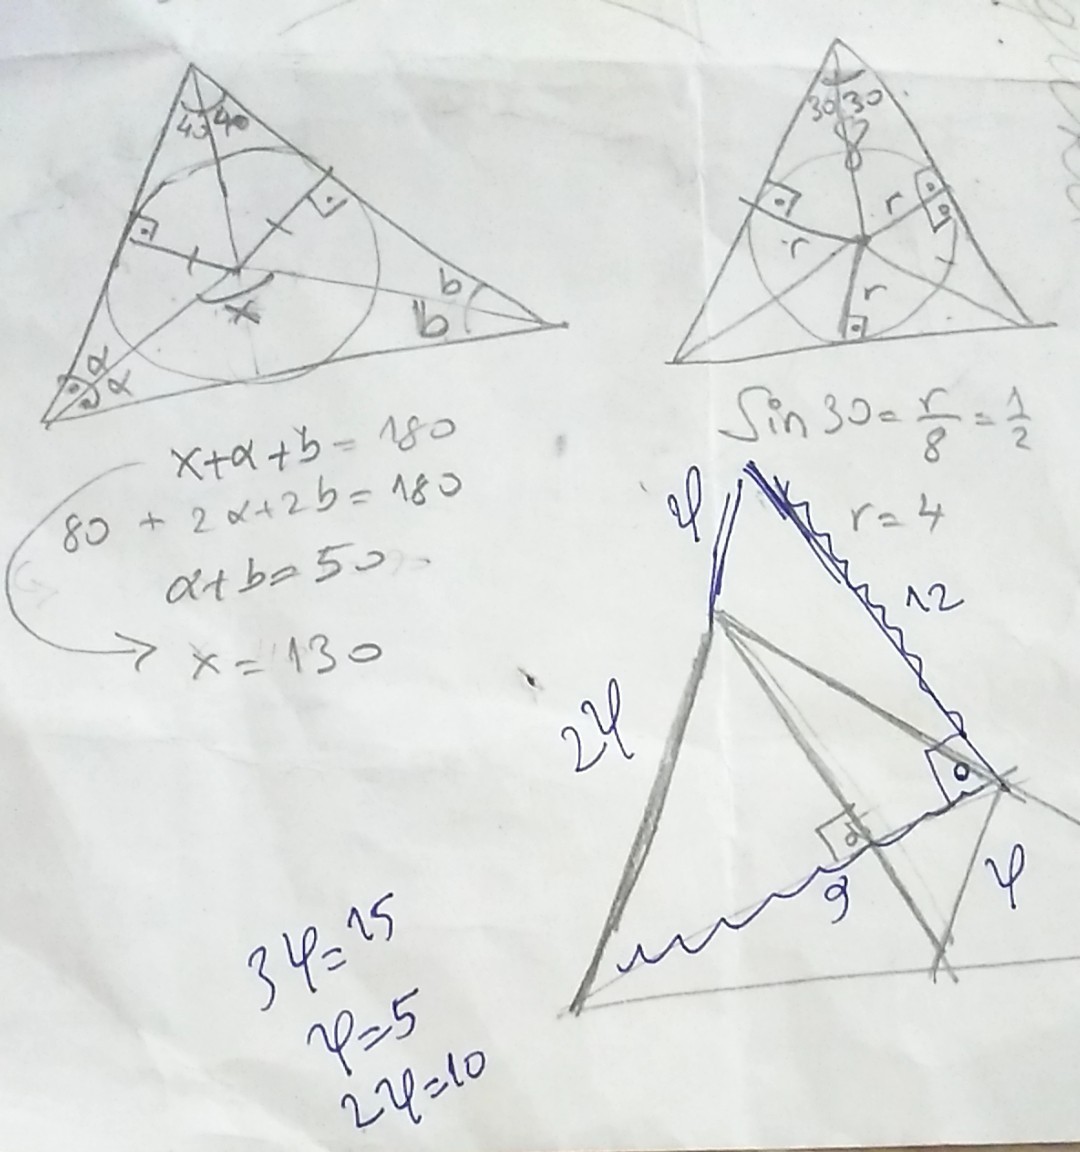 40 40
b
b
x
α
α
x+α+b=180
80 + 2α+2b=180
α+b=50
x=130
30 30
8
r
r
r
Sin 30 = r/8 = 1/2
r=4
φ
12
2φ
9
φ
3φ=15
φ=5
2φ=10